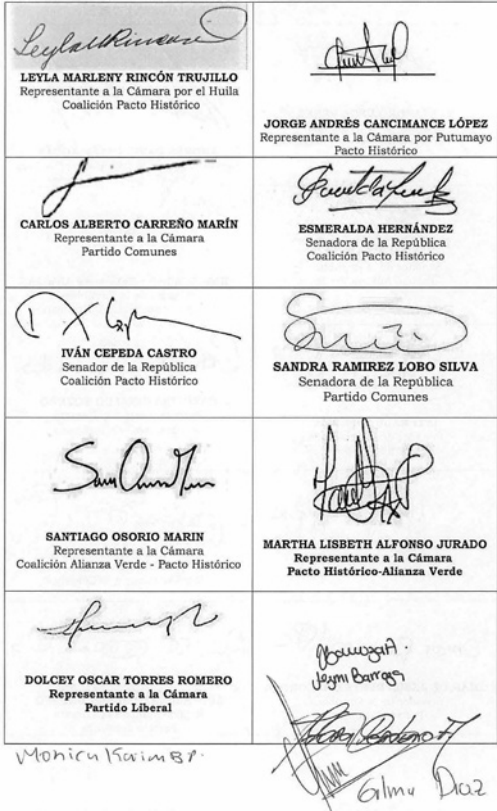 LEYLA MARLENY RINCÓN TRUJILLO
Representante a la Cámara por el Huila
Coalición Pacto Histórico
JORGE ANDRÉS CANCIMANCE LÓPEZ
Representante a la Cámara por Putumayo
Pacto Histórico
CARLOS ALBERTO CARREÑO MARÍN
Representante a la Cámara
Partido Comunes
ESMERALDA HERNÁNDEZ
Senadora de la República
Coalición Pacto Histórico
IVÁN CEPEDA CASTRO
Senador de la República
Coalición Pacto Histórico
SANDRA RAMIREZ LOBO SILVA
Senadora de la República
Partido Comunes
SANTIAGO OSORIO MARIN
Representante a la Cámara
Coalición Alianza Verde - Pacto Histórico
MARTHA LISBETH ALFONSO JURADO
Representante a la Cámara
Pacto Histórico-Alianza Verde
DOLCEY OSCAR TORRES ROMERO
Representante a la Cámara
Partido Liberal
Monica Karim BP.
Gilma Diaz